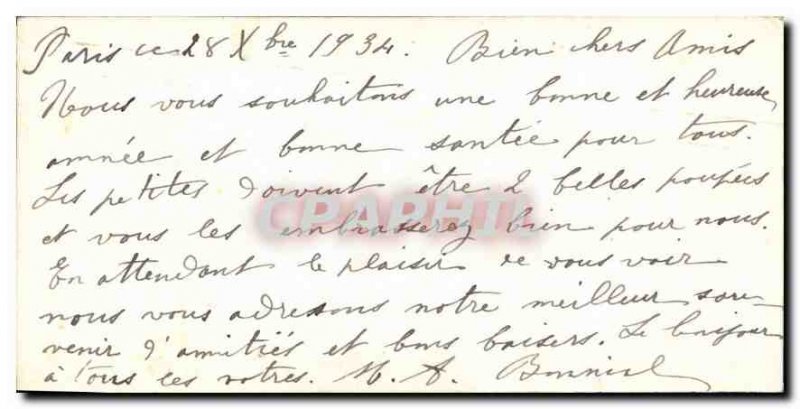 Paris ce 28 Xbre 1934. Bien chers Amis
Nous vous souhaitons une bonne et heureuse
année et bonne santée pour tous.
Les petites doivent être 2 belles poupées
et vous les embrasserez bien pour nous.
En attendant le plaisir de vous voir
nous vous adressons notre meilleur souve-
venir d'amitiés et bons baisers. Le bonjour
à tous les votres. M. A.
CPAPHIL